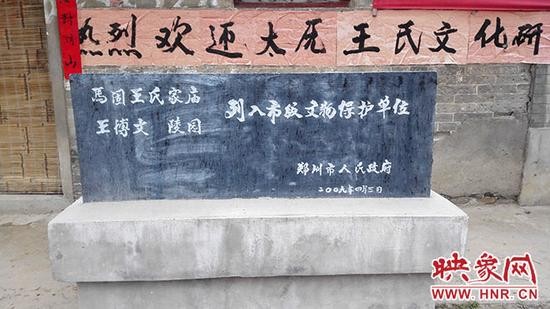 热烈欢迎太原王氏文化研
马固王氏家庙
王博文 陵园
列入市级文物保护单位
郑州市人民政府
二00九年四月三日
映象网
WWW.HNR.CN